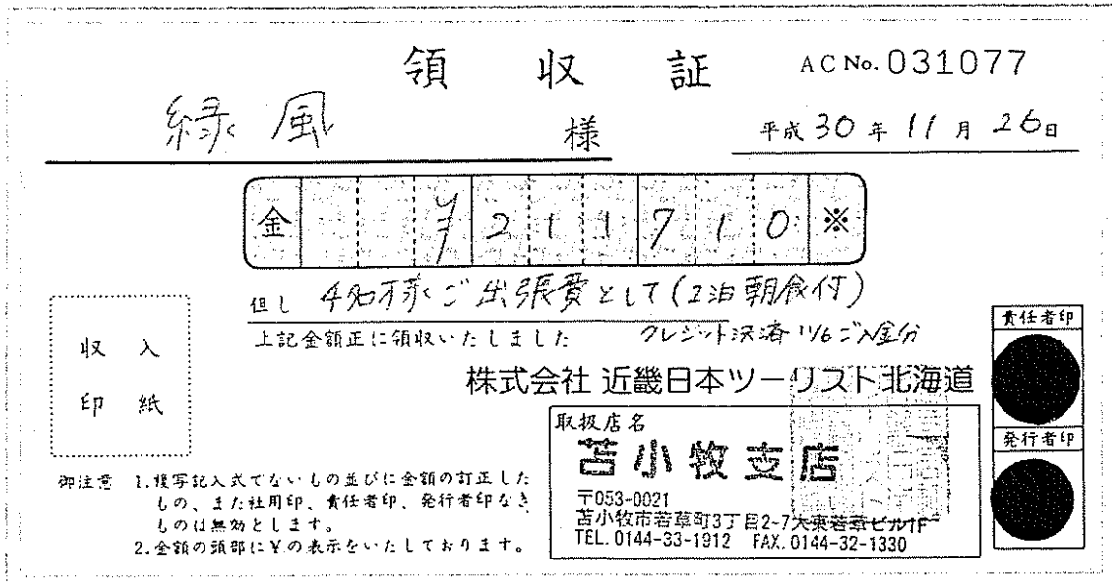 領収証
AC No. 031077
緑風 様
平成30年11月26日
金 ¥211710※
但し 4名様ご出張費として(2泊朝食付)
上記金額正に領収いたしました クレジット決済 11/6ご入金分
収入
印紙
株式会社 近畿日本ツーリスト北海道
取扱店名
苫小牧支店
〒053-0021
苫小牧市若草町3丁目2-7大東若草ビル1F
TEL. 0144-33-1912 FAX. 0144-32-1330
責任者印
発行者印
御注意 1.複写記入式でないもの並びに金額の訂正した
もの、また社用印、責任者印、発行者印なき
ものは無効とします。
2.金額の頭部に¥の表示をいたしております。